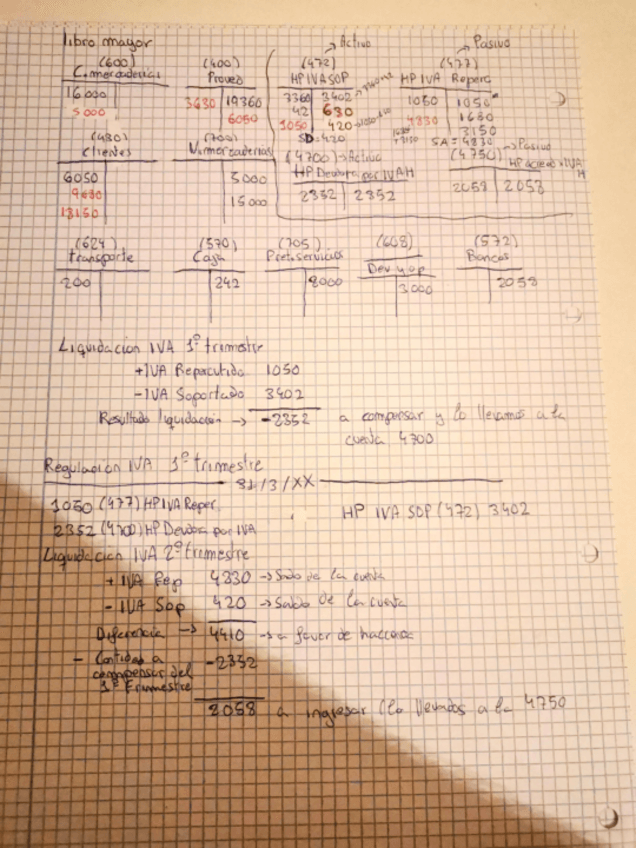 libro mayor
(600)
C. mercaderias
16000
5000
(400)
Proveed
3630 19360
6050
→ Activo
(472)
HP IVA SOP
3360 3402
42 630
1050 420
SD = 420
→ Pasivo
(477)
HP IVA Reperc
1050 1050
4830 1680
3150
SA = 4830
(430)
Clientes
6050
9680
18150
(700)
V. mercaderias
5000
15000
(4700) → Activo
HP Deudora por IVA
2352 2352
(4750) → Pasivo
HP acreed x IVA
2058 2058
(624)
transporte
200
(570)
Caja
242
(705)
Prest. servicios
8000
(608)
Dev y op
3000
(572)
Bancos
2058
Liquidacion IVA 1º trimestre
+ IVA Repercutido 1050
- IVA Soportado 3402
Resultado liquidación → -2352 a compensar y lo llevamos a la
cuenta 4700
Regulación IVA 1º trimestre
31/3/XX
1050 (477) HP IVA Reper. HP IVA SOP (472) 3402
2352 (4700) HP Deudora por IVA
Liquidacion IVA 2º trimestre
+ IVA Rep 4830 → Saldo de la cuenta
- IVA Sop 420 → Saldo de la cuenta
Diferencia → 4410 → a favor de hacienda
- Cantidad a -2352
compensar del
1º trimestre
2058 a ingresar (lo llevados a la 4750